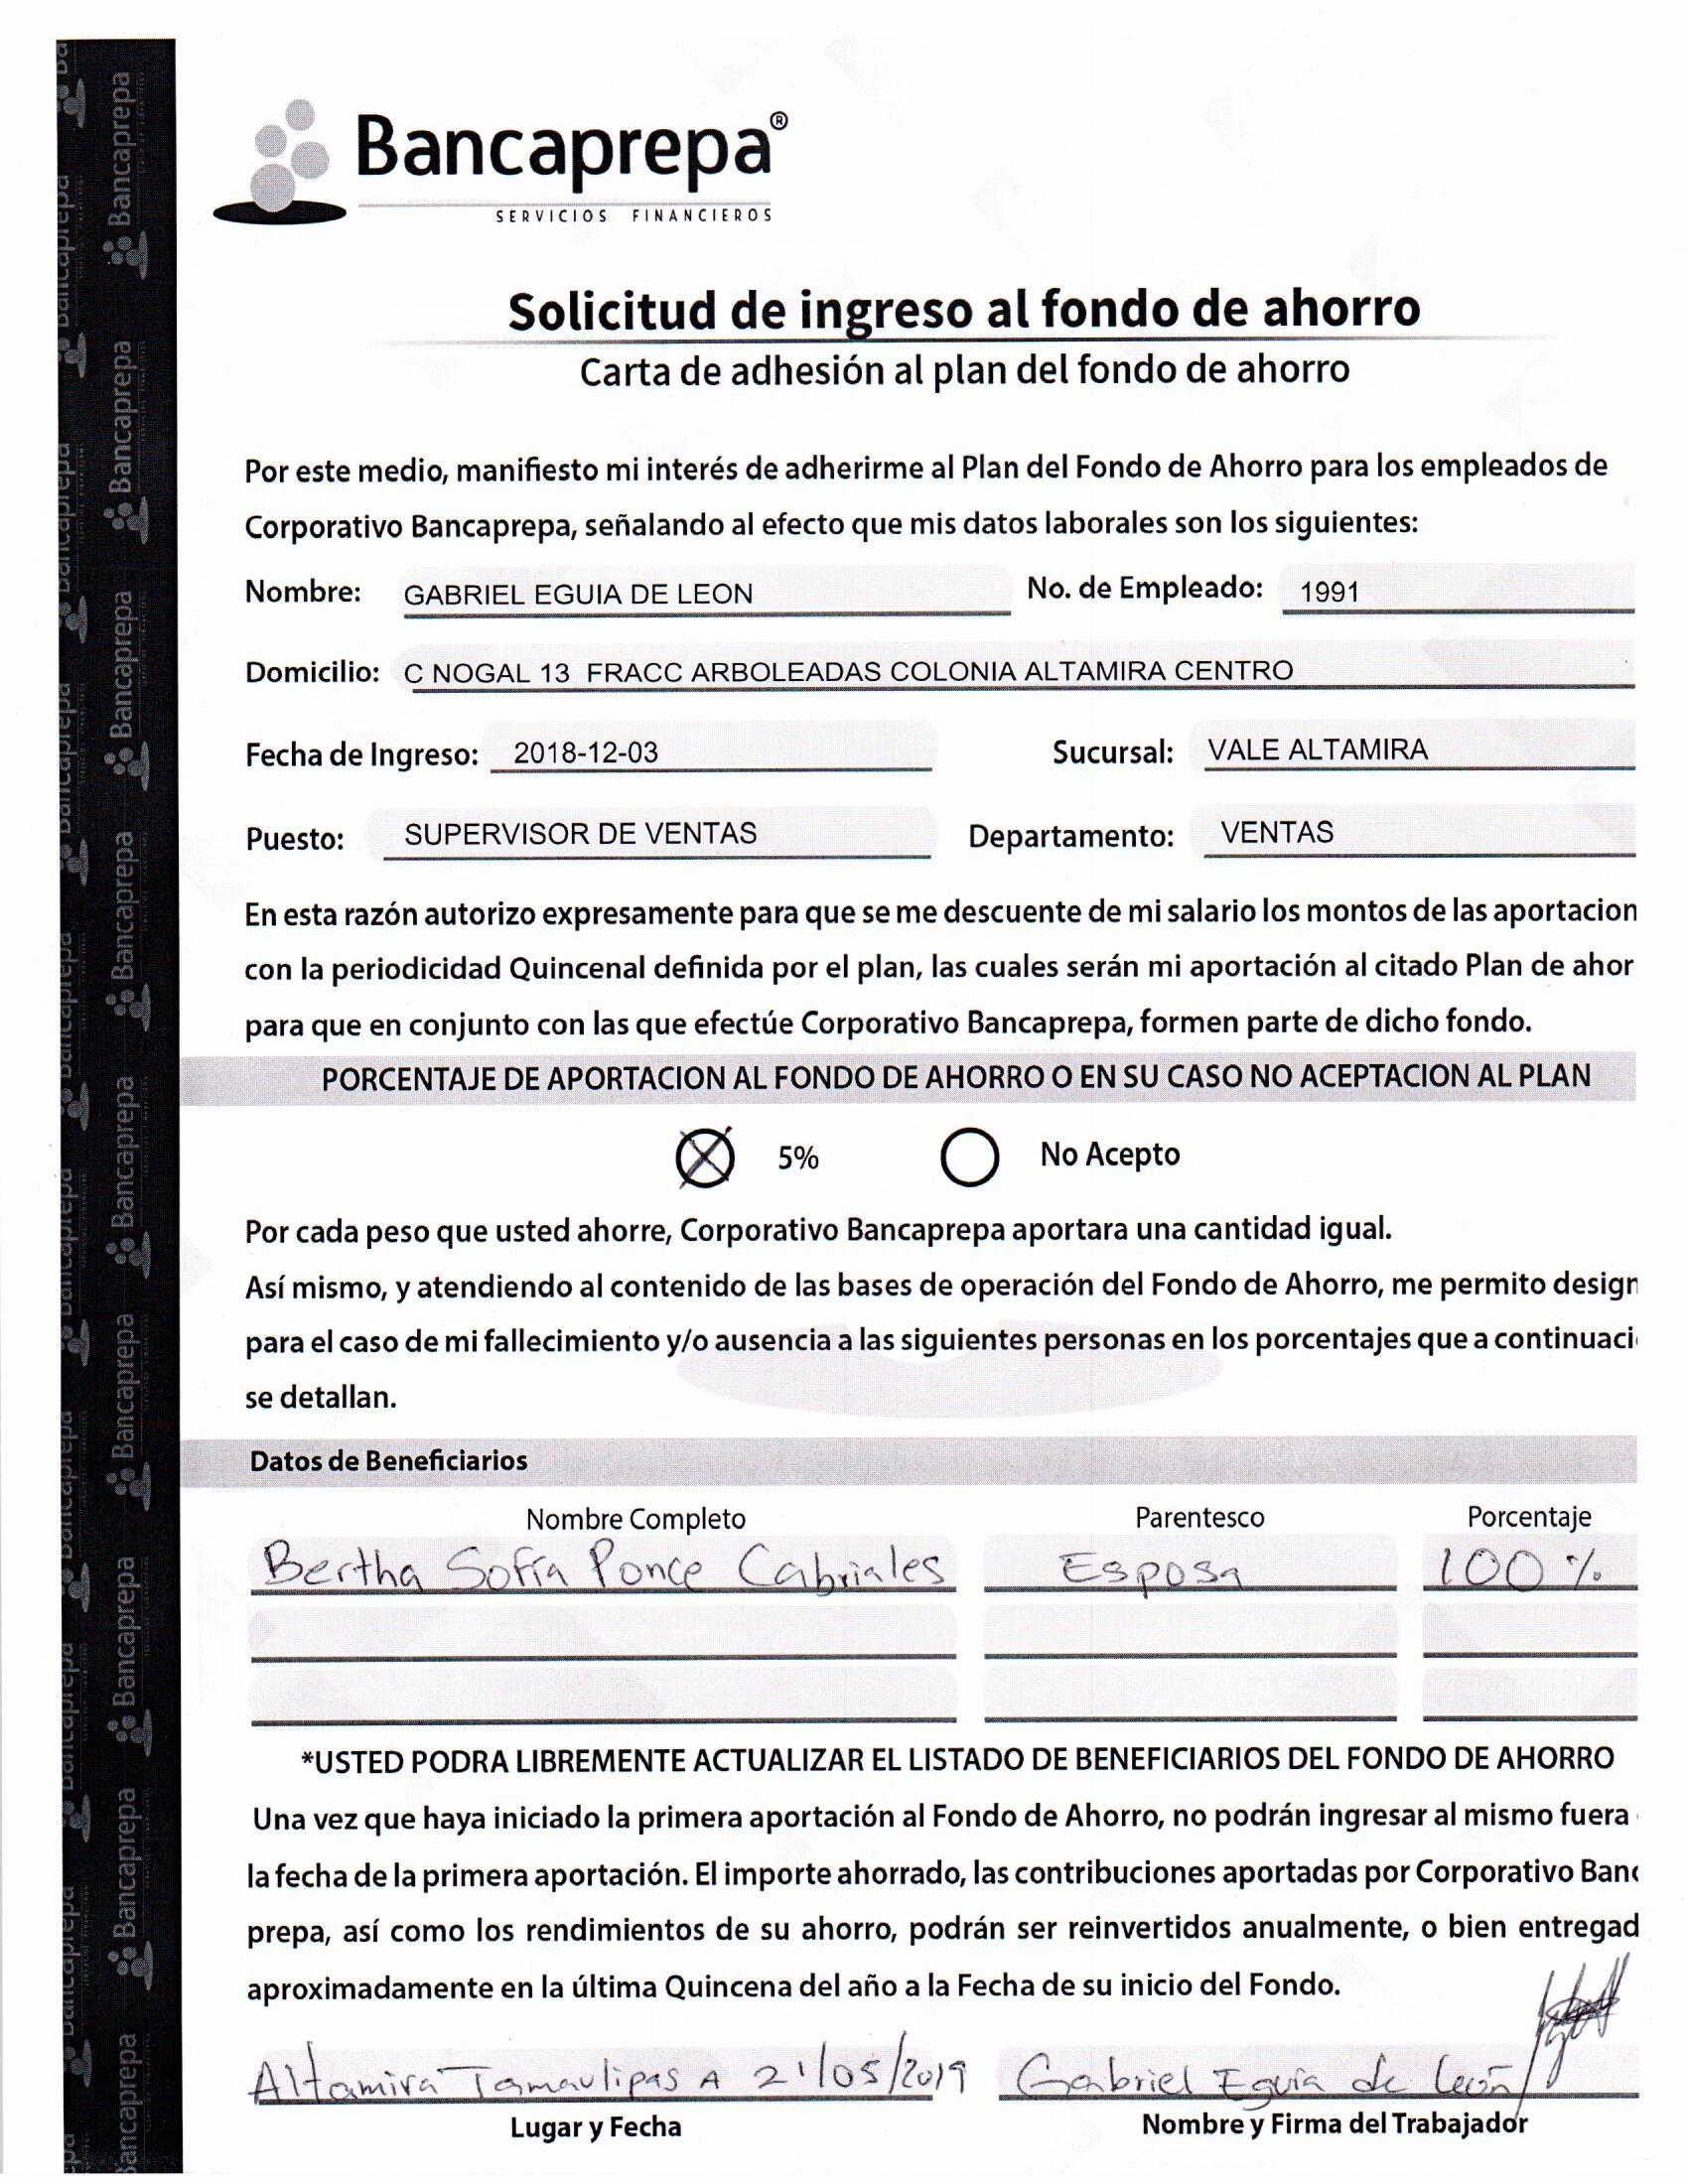 Bancaprepa®
SERVICIOS FINANCIEROS
Solicitud de ingreso al fondo de ahorro
Carta de adhesión al plan del fondo de ahorro
Por este medio, manifiesto mi interés de adherirme al Plan del Fondo de Ahorro para los empleados de
Corporativo Bancaprepa, señalando al efecto que mis datos laborales son los siguientes:
Nombre: GABRIEL EGUIA DE LEON No. de Empleado: 1991
Domicilio: C NOGAL 13 FRACC ARBOLEADAS COLONIA ALTAMIRA CENTRO
Fecha de Ingreso: 2018-12-03 Sucursal: VALE ALTAMIRA
Puesto: SUPERVISOR DE VENTAS Departamento: VENTAS
En esta razón autorizo expresamente para que se me descuente de mi salario los montos de las aportacion
con la periodicidad Quincenal definida por el plan, las cuales serán mi aportación al citado Plan de ahor
para que en conjunto con las que efectúe Corporativo Bancaprepa, formen parte de dicho fondo.
PORCENTAJE DE APORTACION AL FONDO DE AHORRO O EN SU CASO NO ACEPTACION AL PLAN
5% No Acepto
Por cada peso que usted ahorre, Corporativo Bancaprepa aportara una cantidad igual.
Así mismo, y atendiendo al contenido de las bases de operación del Fondo de Ahorro, me permito design
para el caso de mi fallecimiento y/o ausencia a las siguientes personas en los porcentajes que a continuaci
se detallan.
Datos de Beneficiarios
Nombre Completo Parentesco Porcentaje
Bertha Sofía Ponce Cabriales Esposa 100 %
*USTED PODRA LIBREMENTE ACTUALIZAR EL LISTADO DE BENEFICIARIOS DEL FONDO DE AHORRO
Una vez que haya iniciado la primera aportación al Fondo de Ahorro, no podrán ingresar al mismo fuera
la fecha de la primera aportación. El importe ahorrado, las contribuciones aportadas por Corporativo Banc
prepa, así como los rendimientos de su ahorro, podrán ser reinvertidos anualmente, o bien entregad
aproximadamente en la última Quincena del año a la Fecha de su inicio del Fondo.
Altamira Tamaulipas A 21/05/2019 Gabriel Eguia de León
Lugar y Fecha Nombre y Firma del Trabajador